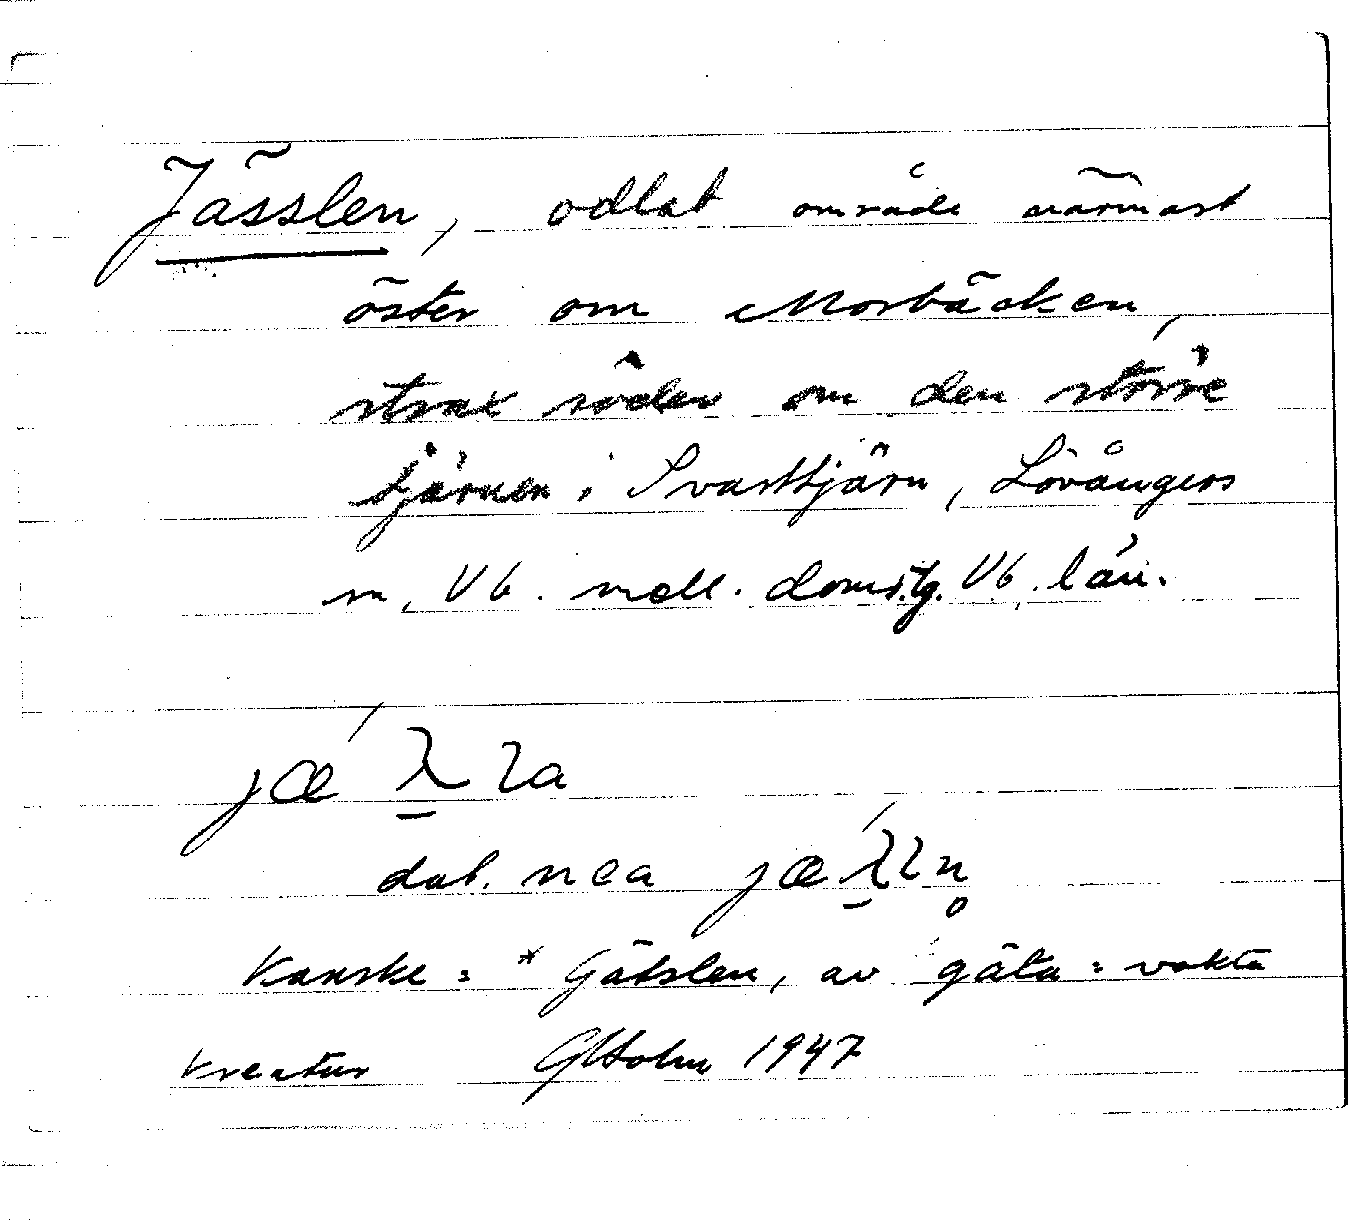 Jässlen, odlat område närmast
öster om Morbäcken,
strax söder om den större
tjärnen i Svarttjärn, Lövångers
sn, Vb. mell. doms.tg. Vb. län.
jǽλ̱ɩa
dat. nea jǽλ̱ɩn̥
Kanske = *Gätslen, av gäta = vakta
kreatur GHolm 1947